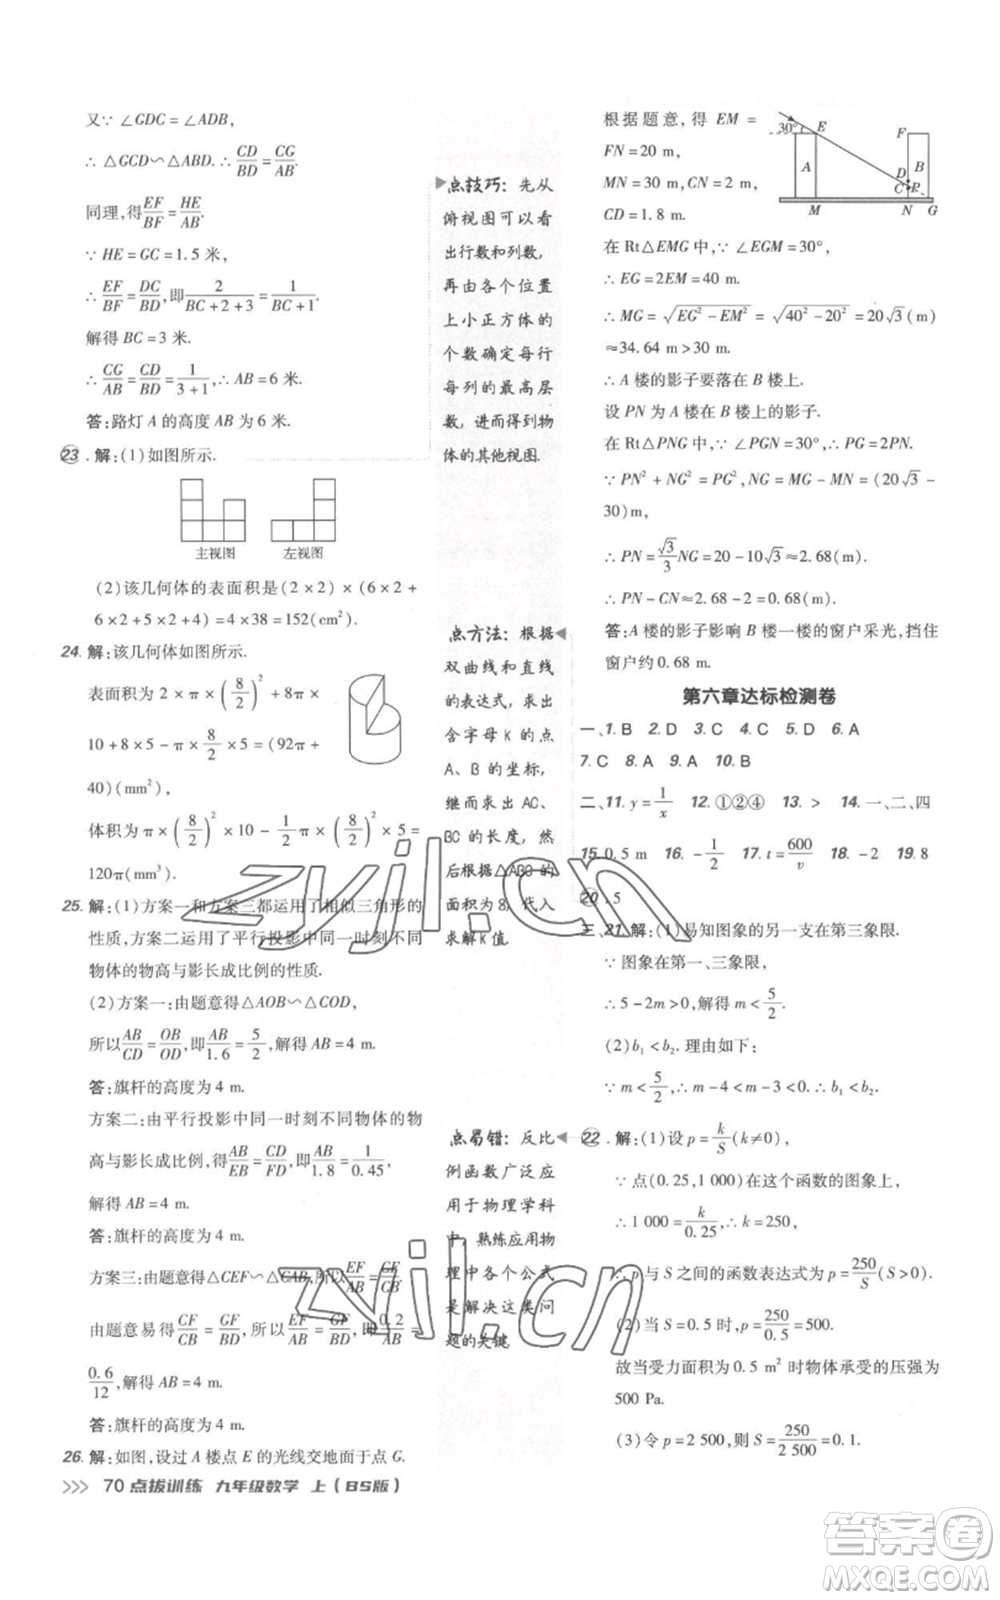 又∵ ∠GDC=∠ADB,
∴ △GCD∽△ABD. ∴ CD/BD=CG/AB.
同理,得EF/BF=HE/AB.
∵ HE=GC=1.5 米,
∴ EF/BF=DC/BD,即2/(BC+2+3)=1/(BC+1).
解得 BC=3 米.
∴ CG/AB=CD/BD=1/(3+1),∴ AB=6 米.
答:路灯 A 的高度 AB 为 6 米.
23. 解:(1)如图所示.
主视图 左视图
(2)该几何体的表面积是(2×2)×(6×2+
6×2+5×2+4)=4×38=152(cm²).
24. 解:该几何体如图所示.
表面积为 2×π×(8/2)²+8π×
10+8×5-π×8/2×5=(92π+
40)(mm²),
体积为 π×(8/2)²×10-1/2π×(8/2)²×5=
120π(mm³).
25. 解:(1)方案一和方案三都运用了相似三角形的
性质,方案二运用了平行投影中同一时刻不同
物体的物高与影长成比例的性质.
(2)方案一:由题意得△AOB∽△COD,
所以AB/CD=OB/OD,即AB/1.6=5/2,解得 AB=4 m.
答:旗杆的高度为 4 m.
方案二:由平行投影中同一时刻不同物体的物
高与影长成比例,得AB/EB=CD/FD,即AB/1.8=1/0.45,
解得 AB=4 m.
答:旗杆的高度为 4 m.
方案三:由题意得△CEF∽△CAB,所以EF/AB=CF/CB.
由题意易得CF/CB=GF/DB,所以EF/AB=GF/DB,即0.2/AB=
0.6/12,解得 AB=4 m.
答:旗杆的高度为 4 m.
26. 解:如图,设过 A 楼点 E 的光线交地面于点 G.
70 点拨训练 九年级数学 上(BS版)
点技巧:先从
俯视图可以看
出行数和列数,
再由各个位置
上小正方体的
个数确定每行
每列的最高层
数,进而得到物
体的其他视图.
点方法:根据
双曲线和直线
的表达式,求出
含字母 K 的点
A、B 的坐标,
继而求出 AC、
BC 的长度,然
后根据△ABC 的
面积为8,代入
求解K值.
点易错:反比
例函数广泛应
用于物理学科
中,熟练应用物
理中各个公式
是解决这类问
题的关键.
根据题意,得 EM=
FN=20 m,
MN=30 m,CN=2 m,
CD=1.8 m.
30° E F A D B C P M N G
在 Rt△EMG 中,∵ ∠EGM=30°,
∴ EG=2EM=40 m.
∴ MG=√(EG²-EM²)=√(40²-20²)=20√3(m)
≈34.64 m>30 m.
∴ A 楼的影子要落在 B 楼上.
设 PN 为 A 楼落在 B 楼上的影子.
在 Rt△PNG 中,∵ ∠PGN=30°,∴ PG=2PN.
∵ PN²+NG²=PG²,NG=MG-MN=(20√3-
30)m,
∴ PN=√3/3NG=20-10√3≈2.68(m).
∴ PN-CN≈2.68-2=0.68(m).
答:A 楼的影子影响 B 楼的窗户采光,挡住
窗户约 0.68 m.
第六章达标检测卷
一、1. B 2. D 3. C 4. C 5. D 6. A
7. C 8. A 9. A 10. B
二、11. y=1/x 12. ①②④ 13. > 14. 一、二、四
15. 0.5 m 16. -1/2 17. t=600/v 18. -2 19. 8
20. 5
三、21. 解:(1)易知图象的另一支在第三象限.
∵ 图象在第一、三象限,
∴ 5-2m>0,解得 m<5/2.
(2)b₁<b₂. 理由如下:
∵ m<5/2,∴ m-4<m-3,∴ b₁<b₂.
22. 解:(1)设 p=k/S(k≠0),
∵ 点(0.25,1 000)在这个函数的图象上,
∴ 1 000=k/0.25,∴ k=250,
∴ p 与 S 之间的函数表达式为 p=250/S(S>0).
(2)当 S=0.5 时,p=250/0.5=500.
故当受力面积为 0.5 m² 时物体承受的压强为
500 Pa.
(3)令 p=2 500,则 S=250/2 500=0.1.
zyjl.cn
zyjl.cn
答案圈
MXQE.COM